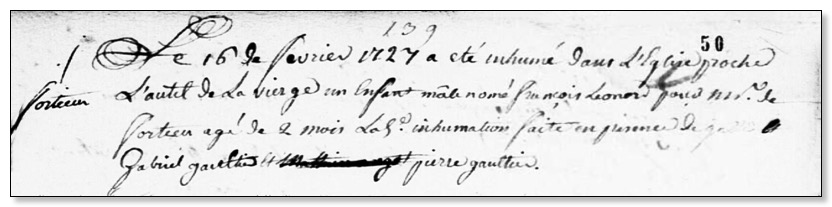 139
50
Le 16 de fevrier 1727 a eté inhumé dans L'Eglise proche
sortieu L'autel de La vierge un Enfant mâle nomé françois Leonor pour Mr. de
Sortieu agé de 2 mois La de. inhumation faite en presence de
Gabriel gaultier et pierre gaultier.